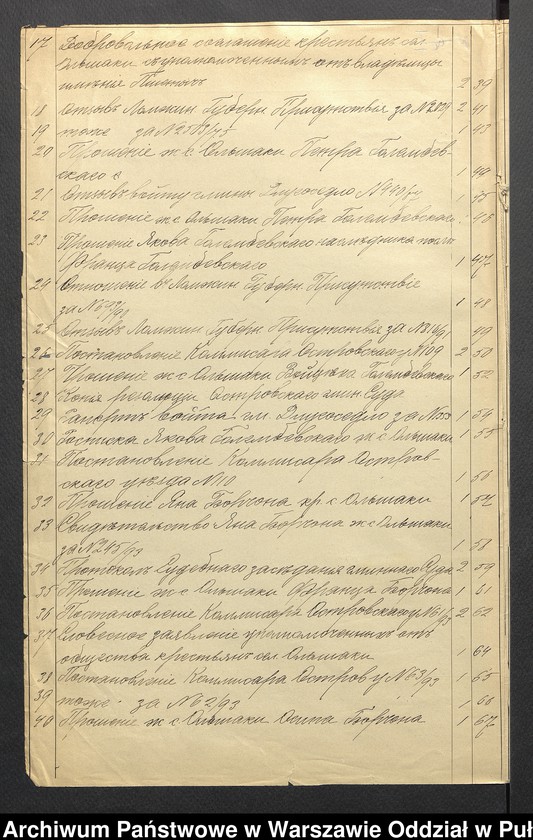 17 Добровольное соглашение крестьянъ сел.
Ольшаки съ уполномоченнымъ отъ владѣлицы
имѣнія 2 39
18 Отзывъ Ломжин Губерн Присутствія за № 2 41
19 тоже за № 1 43
20 Прошеніе ж с. Ольшаки Петра Голембев-
скаго 1 44
21 Отзывъ войту гмины Длугоседло № 1 45
22 Прошеніе ж с Ольшаки Петра Голембевскаго 1 46
23 Прошеніе Якова Голембевскаго наслѣдника
Франца Голембевскаго 1 47
24 Отношеніе въ Ломжин Губерн Присутствіе
за № 1 48
25 Отзывъ Ломжин Губерн Присутствія за № 49
26 Постановленіе Коммисара Островскаго у № 109 2 50
27 Прошеніе ж с Ольшаки Голембевскаго 1 52
28 Копія резолюціи Островскаго гмин. Суда
29 Рапортъ войта гм. Длугоседло за № 1 54
30 Росписка Якова Голембевскаго ж с Ольшаки 1 55
31 Постановленіе Коммисара Остров-
скаго уѣзда № 110 1 56
32 Прошеніе Яна кр. с. Ольшаки 1 57
33 Свидѣтельство Яна ж с Ольшаки
за № 245/93 1 58
34 Протоколъ Судебнаго засѣданія гминнаго Суда 2 59
35 Прошеніе ж с Ольшаки Франца 1 61
36 Постановленіе Коммисара Островскаго у № 61/93 2 62
37 Словесное заявленіе уполномоченныхъ отъ
общества крестьянъ сел. Ольшаки 1 64
38 Постановленіе Коммисара Остров у № 63/93 1 65
39 тоже за № 62/93 1 66
40 Прошеніе ж с Ольшаки Осипа 1 67
Archiwum Państwowe w Warszawie Oddział w Puł